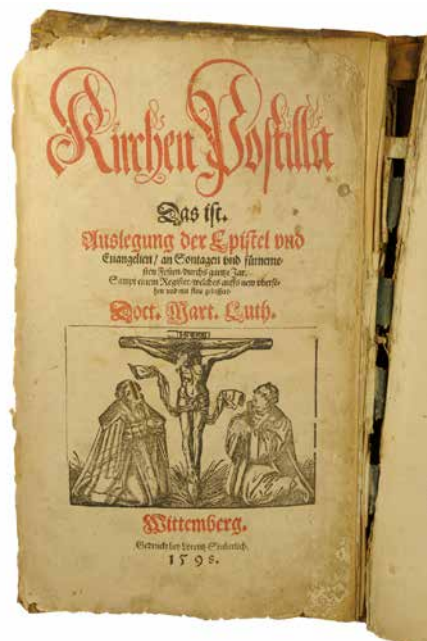 Kirchen Postilla
Das ist.
Auslegung der Epistel vnd
Euangelien / an Sontagen vnd fürneme-
sten Festen / durchs gantze Jar.
Sampt einem Register / welches auffs new überse-
hen und mit fleis
Doct. Mart. Luth.
Wittemberg.
Gedruckt bey Lorentz Seuberlich.
1598.